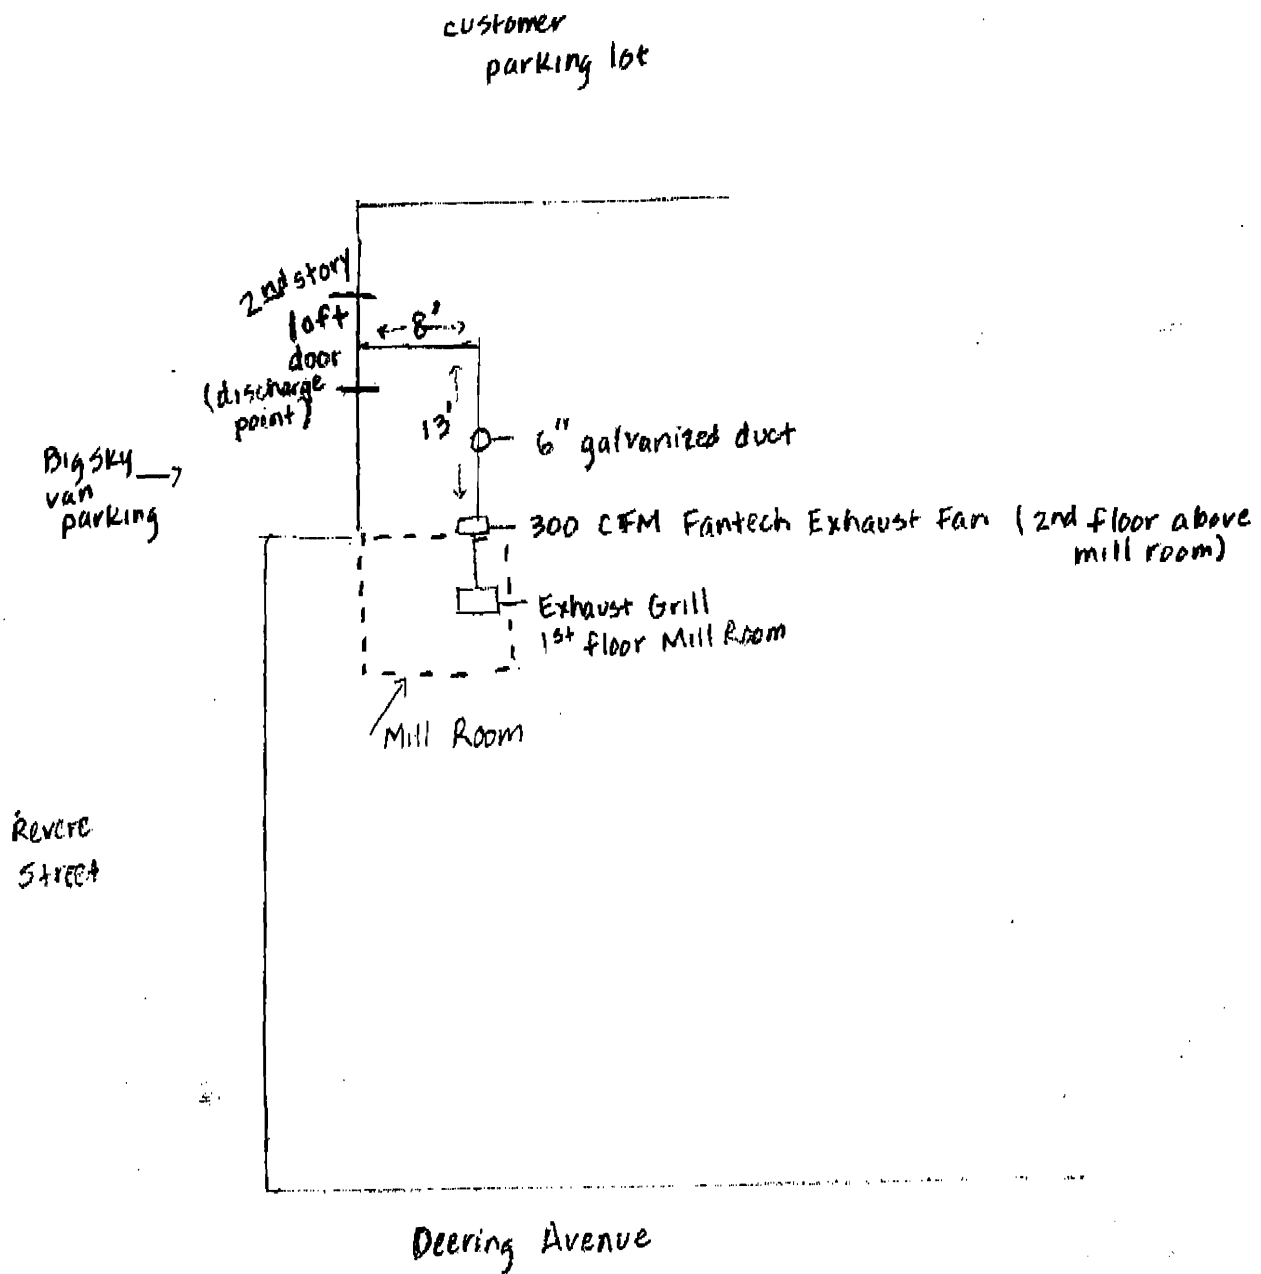 customer
parking lot
2nd story
loft
door
(discharge
point)
8'
13'
6" galvanized duct
Big Sky
van
parking
300 CFM Fantech Exhaust Fan (2nd floor above
mill room)
Exhaust Grill
1st floor Mill Room
Mill Room
Revere
Street
Deering Avenue